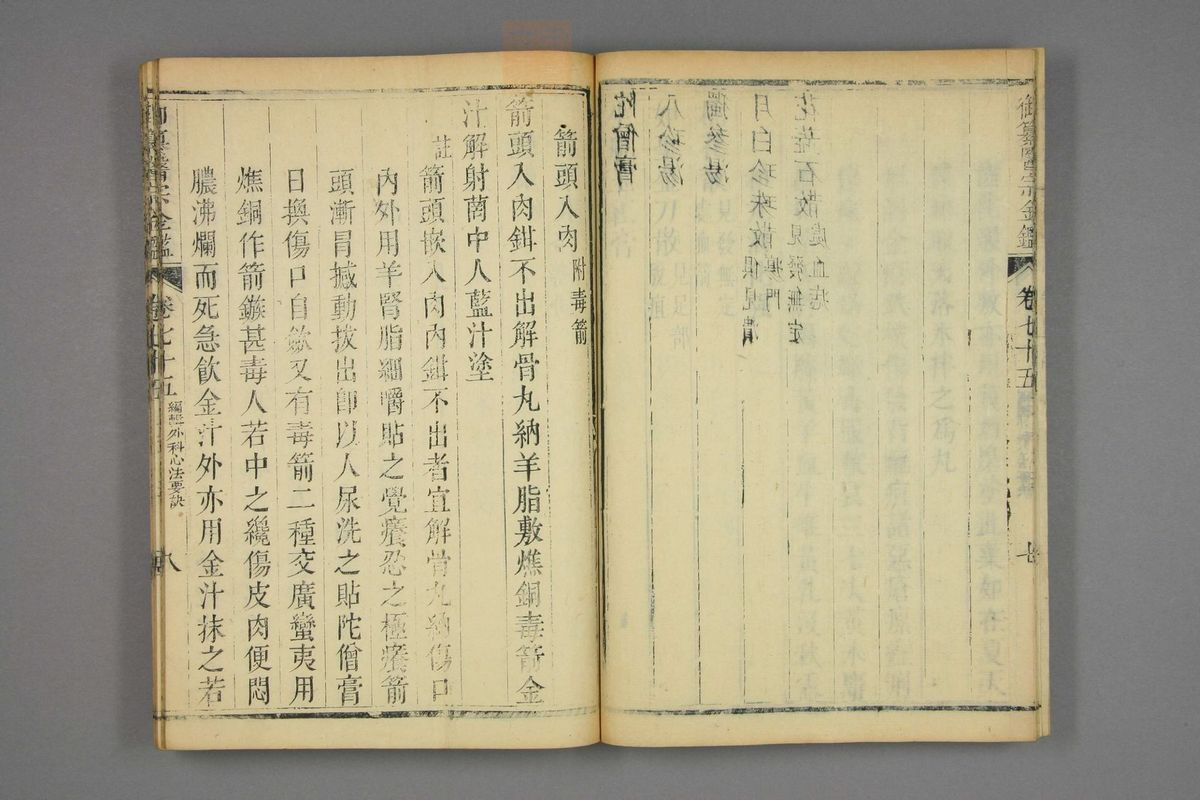 御纂醫宗金鑑
卷七十五
七
花蕊石散見發無定
處血疙
月白珍珠散俱見潰
瘍門
獨參湯
八珍湯
陀僧膏
箭頭入肉附毒箭
箭頭入肉鉗不出解骨丸納羊脂敷燋銅毒箭金
汁解射茵中人藍汁塗
註箭頭嵌入肉內鉗不出者宜解骨丸納傷口
內外用羊腎脂細嚼貼之覺癢忍之極癢箭
頭漸冒撼動拔出即以人尿洗之貼陀僧膏
日換傷口自歛又有毒箭二種交廣蠻夷用
燋銅作箭鏃甚毒人若中之纔傷皮肉便悶
膿沸爛而死急飲金汁外亦用金汁抹之若
御纂醫宗金鑑
卷七十五
編輯外科心法要訣
八